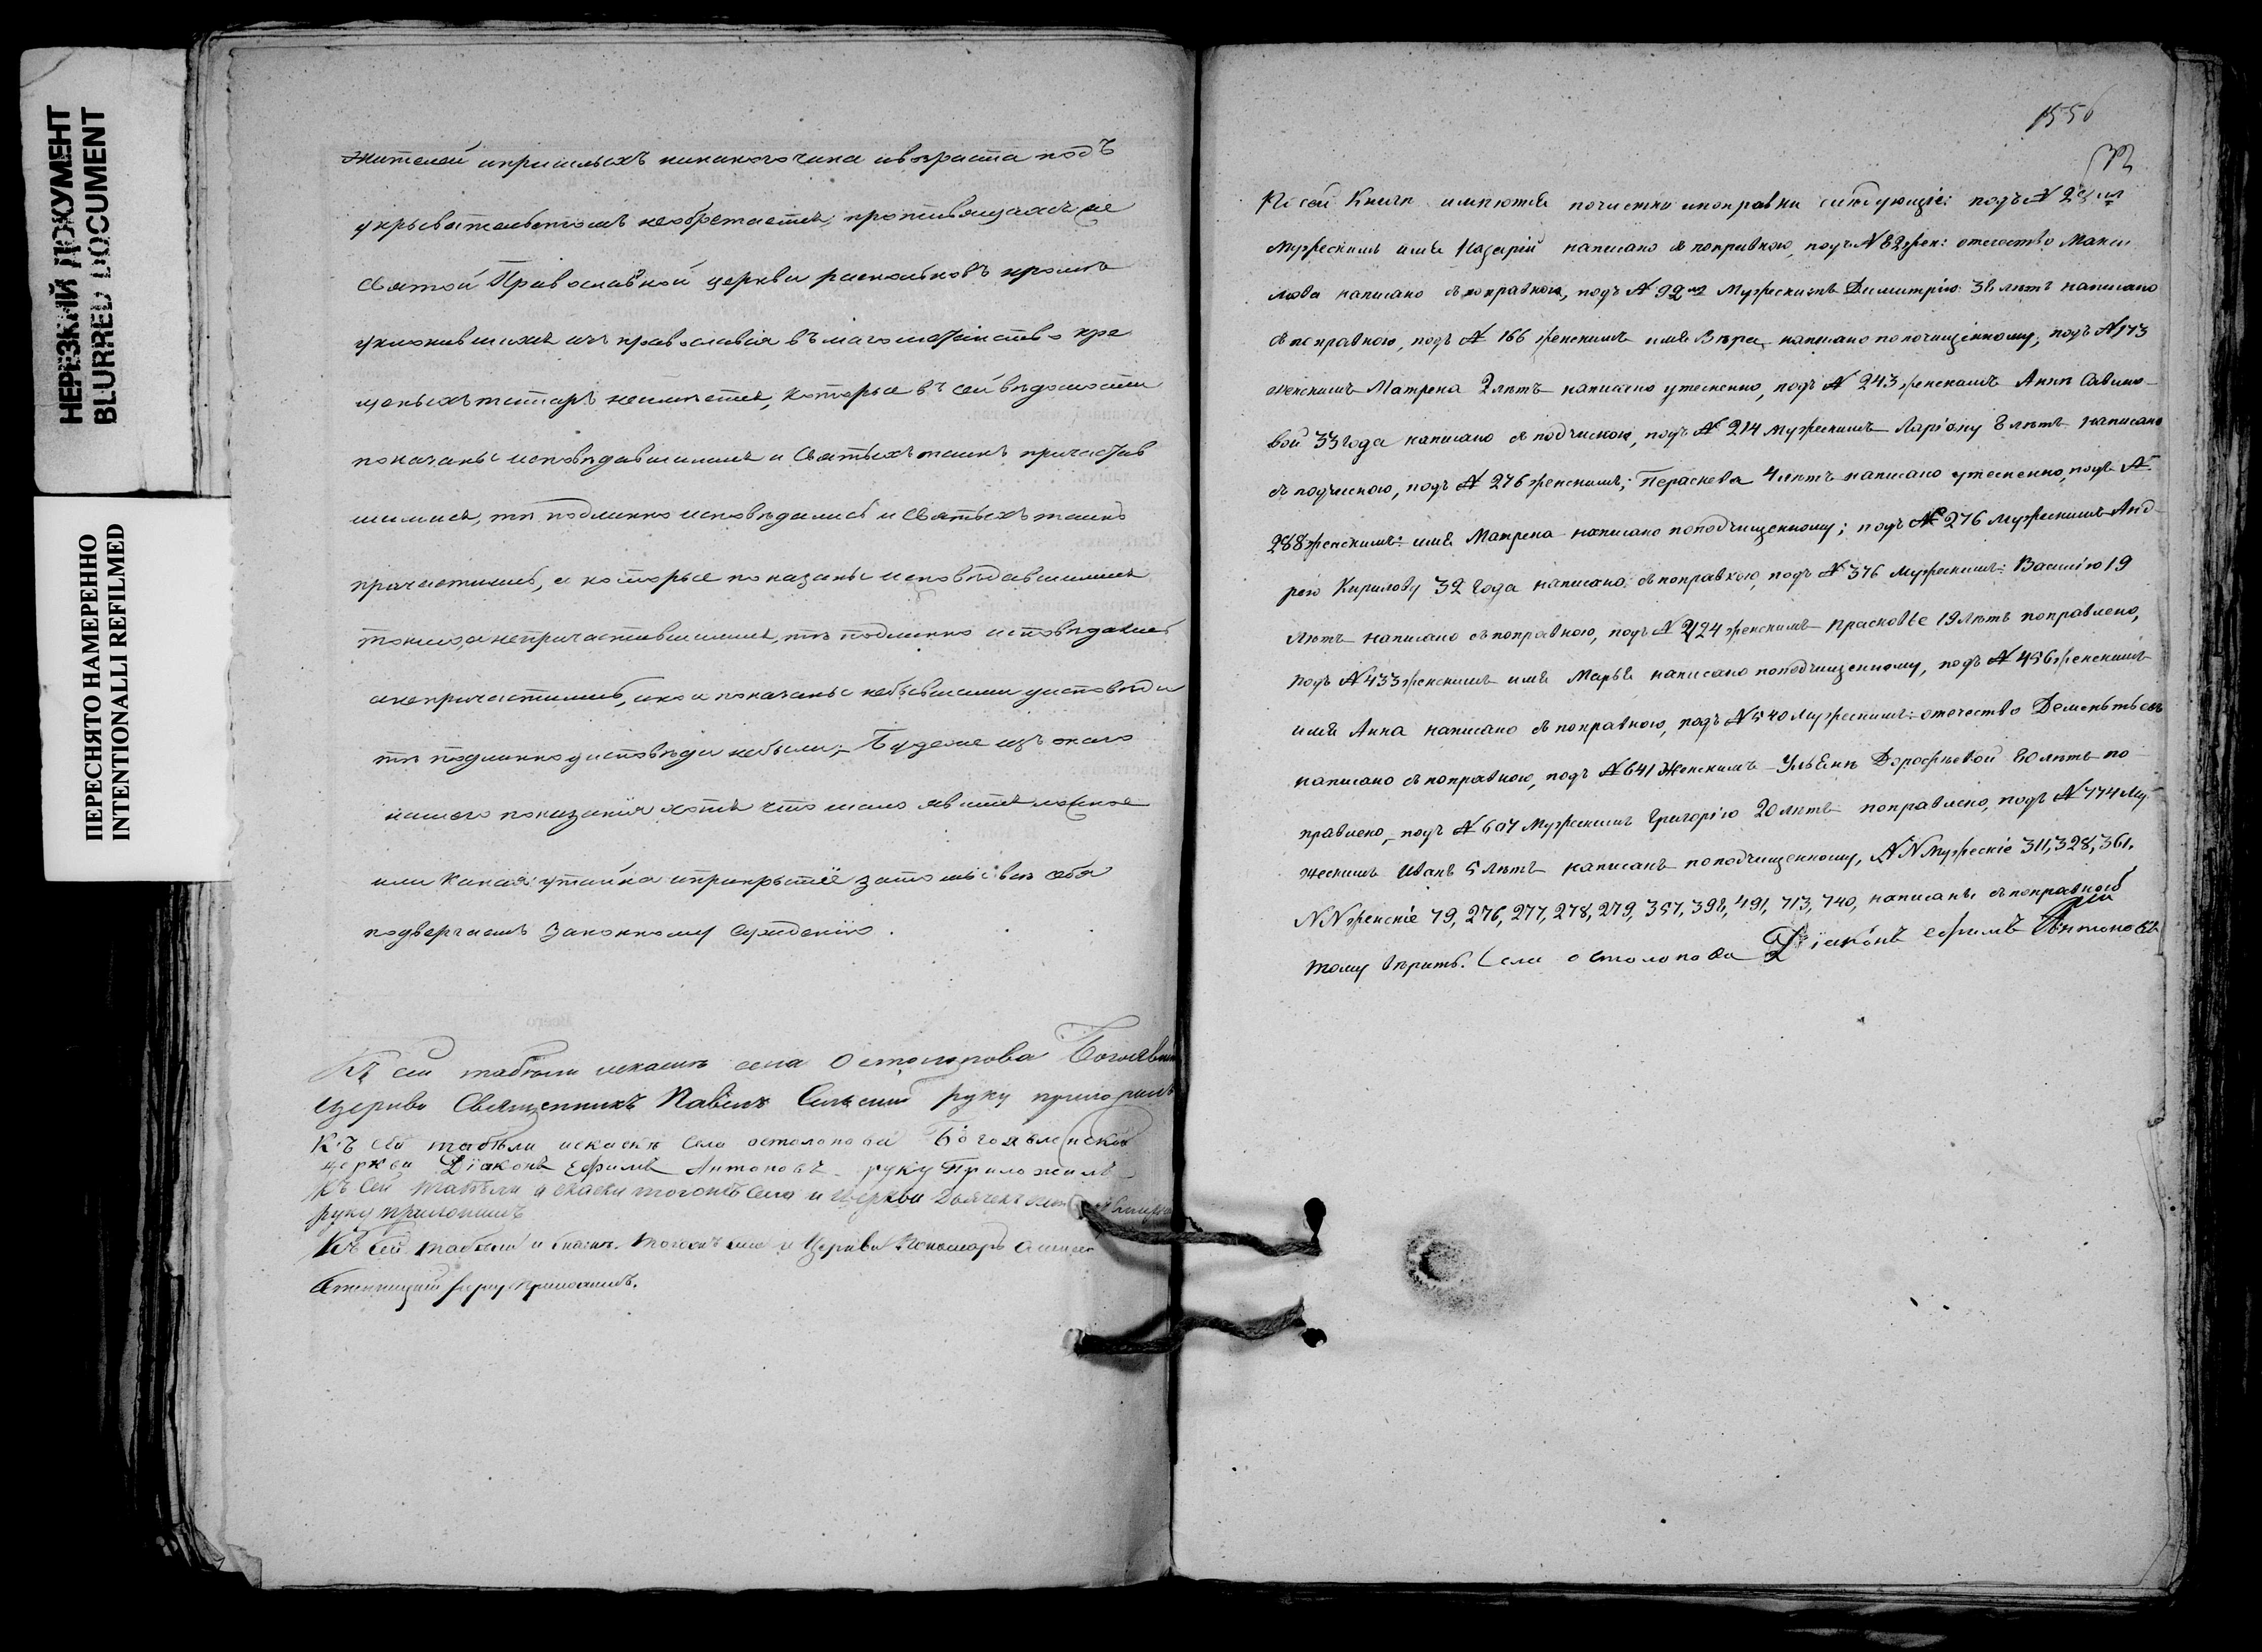 НЕРЕЗКИЙ ДОКУМЕНТ
BLURRED DOCUMENT
ПЕРЕСНЯТО НАМЕРЕННО
INTENTIONALLI REFILMED
жителей и пришлыхъ никакого чина и возраста подъ
укрывательствомъ необретается; противящихся
святой Православной церкви раскольновъ кромѣ
уклонившихся изъ православія въ магометанство кре
щеныхъ татаръ неимеется, которые въ сей вѣдомости
показаны исповѣдавшимися и святыхъ таинъ причастив
шимися, тѣ подлинно исповѣдались и святыхъ таинъ
причастились, а которые показаны исповѣдавшимися
токмо, а непричастившимися, тѣ подлинно исповѣдались
а непричастились, а кои показаны небывшими у исповѣди
тѣ подлинно у исповѣди небыли; Буде же изъ онаго
нашего показанія хотя что мало явится ложное
или какая утайка и прикрытіе зато мы все себя
подвергаемъ законному сужденію.
Къ сей табѣли и скаскѣ села Остолопова Богоявлен
Церкви Священникъ Павелъ руку приложилъ
Къ сей табѣли искаскѣ села остолопова Богоявленской
церкви Діаконъ Ефимъ Антоновъ руку приложилъ
Къ сей табѣли и скаски тогожъ села и церкви Дьячекъ
руку приложилъ
Къ сей табели и скаскѣ тогожъ села и Церкви Пономарь
руку приложилъ.
1556
Въ сей Книги имѣются почистки и поправки слѣдующіе: подъ N
мужескимъ имя Назарій написано съ поправкою, подъ N 82 жен: отечество Макси
мова написано съ поправкою, подъ N 92мъ Мужескимъ Димитрію 38 лѣтъ написано
съ поправкою, подъ N 166 женскимъ имя Вѣра написано по почищенному, подъ N 173
женскимъ Матрена 2 лѣтъ написано утеснено, подъ N 243 женскимъ Аннѣ Савино-
вой 33 года написано съ подчискою, подъ N 214 мужескимъ Ларіону 8 лѣтъ написано
съ подчискою, подъ N 276 женскимъ; Параскева 4 лѣтъ написано утеснено, подъ N
288 женскимъ имя Матрена написано поподчищенному; подъ N 276 мужескимъ Анд-
рею Кирилову 32 года написано съ поправкою, подъ N 376 мужескимъ: Василію 19
лѣтъ написано съ поправкою, подъ N 424 женскимъ Прасковье 19 лѣтъ поправлено,
подъ N 433 женскимъ имя Марья написано поподчищенному, подъ N 456 женскимъ
имя Анна написано съ поправкою, подъ N 540 Мужескимъ: отечество Дементьевъ
написано съ поправкою, подъ N 641 Женскимъ Ульянѣ Дорофѣевой 80 лѣтъ по-
правлено, подъ N 607 Мужескимъ Григорію 20 лѣтъ поправлено, подъ N 774 Му-
жескимъ Иванъ 5 лѣтъ написанъ поподчищенному, NN Мужескіе 311, 328, 361.
NN женскіе 79, 276, 277, 278, 279, 357, 398, 491, 713, 740, написаны съ поправкой
тому вѣрить. Села остолопова Діаконъ Ефимъ Антоновъ